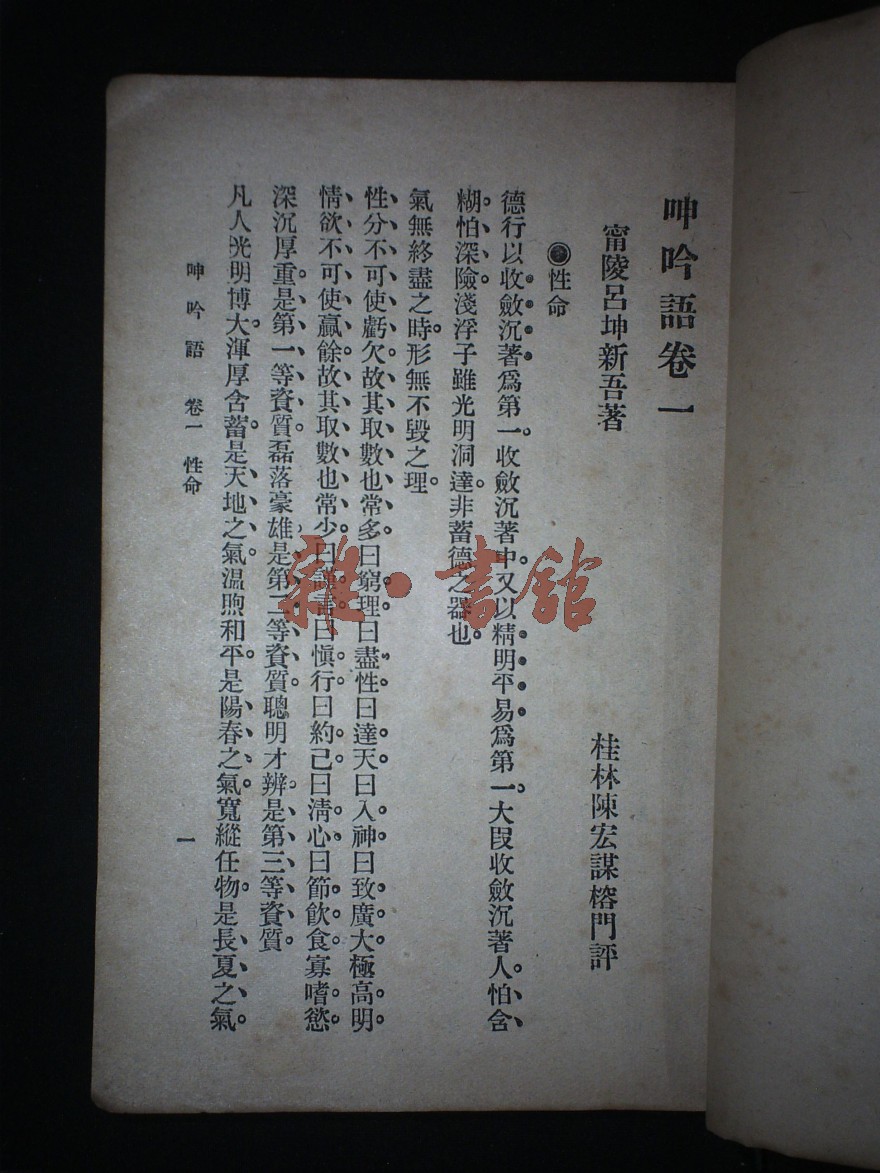 呻吟語卷一
甯陵呂坤新吾著
桂林陳宏謀榕門評
◉性命
德行以收斂沉著爲第一。收斂沉著中。又以精明平易爲第一。大段收斂沉著人。怕含
糊。怕深險。淺浮子雖光明洞達。非蓄德之器也。
氣無終盡之時。形無不毀之理。
性分不可使虧欠。故其取數也常多。曰窮理。曰盡性。曰達天。曰入神。曰致廣大。極高明
情欲不可使贏餘。故其取數也常少。曰謹言。曰愼行。曰約己。曰淸心。曰節飮食。寡嗜慾
深沉厚重。是第一等資質。磊落豪雄。是第二等資質。聰明才辨。是第三等資質
凡人光明博大。渾厚含蓄。是天地之氣。溫煦和平。是陽春之氣。寬縱任物。是長夏之氣。
呻吟語 卷一 性命
一
雜·書館